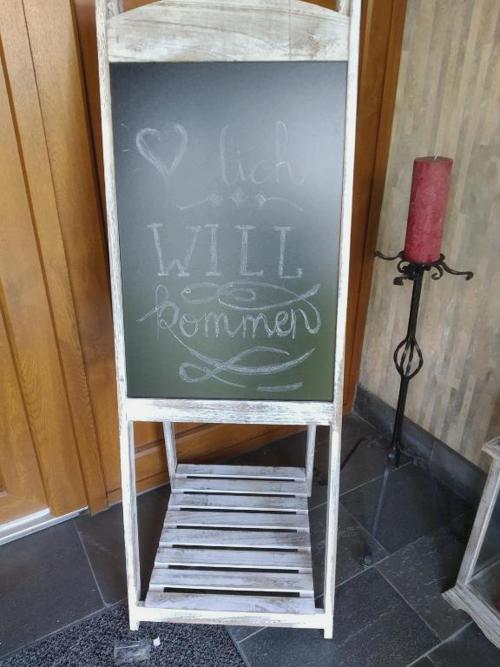 ♥ lich
WILL
kommen